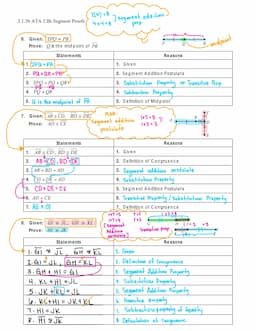 2.1.26 ATA 2.8b Segment Proofs
segment addition
prop
6. Given: 2PQ = PR
Prove: Q is the midpoint of PR
midpoint
Statements Reasons
1. 2PQ = PR 1. Given
2. PQ + QR = PR 2. Segment Addition Postulate
3. 2PQ = PQ + QR 3. Substitution Property or Transitive Prop
4. PQ = QR 4. Subtraction Property
5. Q is the midpoint of PR 5. Definition of Midpoint
7. Given: AB ≅ CD, BD ≅ DE
Prove: AD ≅ CE
PLAN
segment addition
postulate
Statements Reasons
1. AB ≅ CD, BD ≅ DE 1. Given
2. AB = CD, BD = DE 2. Definition of Congruence
3. AB + BD = AD 3. Segment addition postulate
4. CD + DE = AD 4. Substitution Property
5. CD + DE = CE 5. Segment Addition Property
6. AD = CE 6. Transitive Property / Substitution Property
7. AD ≅ CE 7. Definition of Congruence
8. Given: GI ≅ JL, GH ≅ KL
Prove: HI ≅ JK
Statements Reasons
1. GI ≅ JL, GH ≅ KL 1. Given
2. GI = JL, GH = KL 2. Definition of Congruence
3. GH + HI = GI 3. Segment Addition Property
4. KL + HI = JL 4. Substitution Property
5. JK + KL = JL 5. Segment Addition Property
6. KL + HI = JK + KL 6. Transitive Property
7. HI = JK 7. Subtraction property of equality
8. HI ≅ JK 8. Definition of Congruence